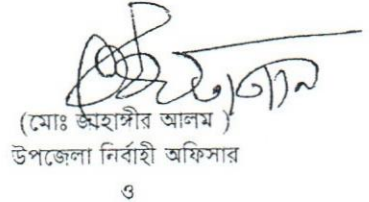 (মোঃ জাহাঙ্গীর আলম )
উপজেলা নির্বাহী অফিসার
ও